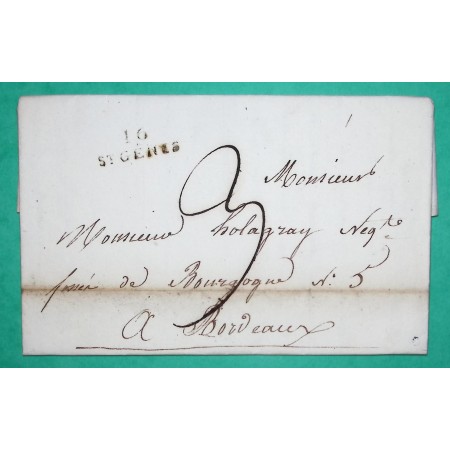 16
ST GENIS
3
Monsieur
Monsieur holagray Neg.te
fossé de Bourgogne N.° 5
a Bordeaux